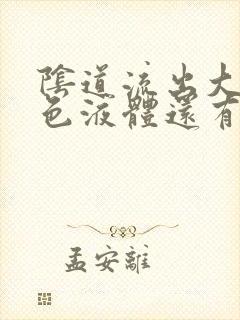 陰道流出大
色液體還有
孟安離